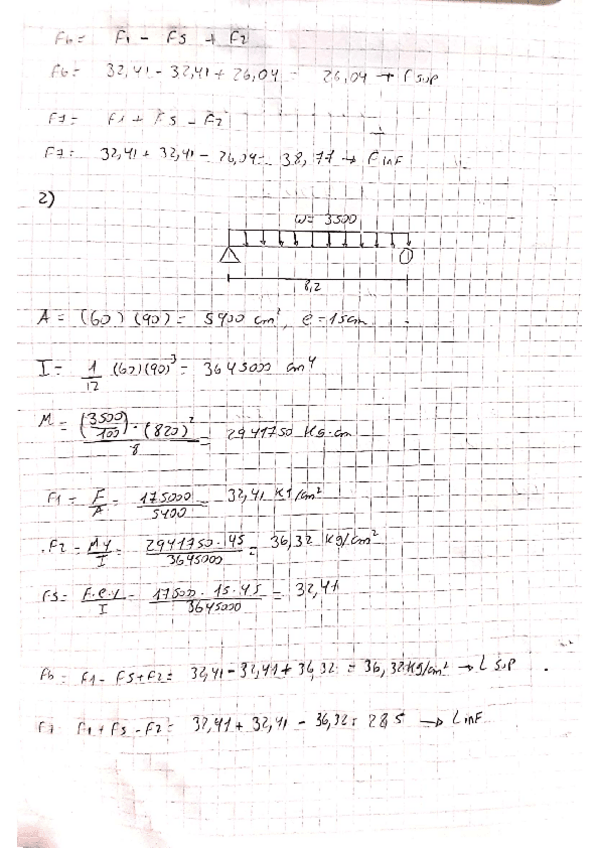 F6 = F1 - F5 + F2
F6 = 32,41 - 32,41 + 26,04 = 26,04 → L sup
F7 = F1 + F5 - F2
F7 = 32,41 + 32,41 - 26,04 = 38,77 → F inf
2)
w = 3500
8,2
A = (60) (90) = 5400 cm², e = 15cm
I = 1/12 (60)(90)³ = 3645000 cm⁴
M = (3500/100) · (820)² / 8 = 2941750 Kg·cm
F1 = F/A = 175000/5400 = 32,41 Kg/cm²
F2 = My/I = 2941750·45/3645000 = 36,32 Kg/cm²
F5 = F·e·y/I = 17500·15·45/3645000 = 32,41
F6 = F1 - F5 + F2 = 32,41 - 32,41 + 36,32 = 36,32 Kg/cm² → L sup
F7 = F1 + F5 - F2 = 32,41 + 32,41 - 36,32 = 28,5 → L inf